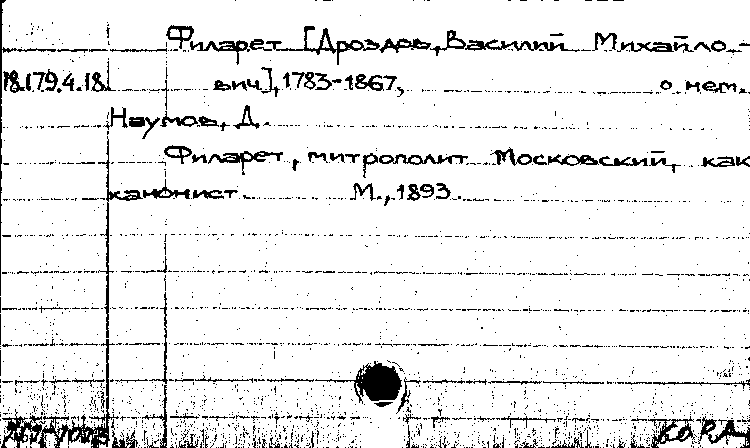 Филарет [Дроздов, Василий Михайло-
18.179.4.18. вич], 1783-1867, о нем.
Наумов, Д.
Филарет, митрополит Московский, как
канонист. М., 1893.